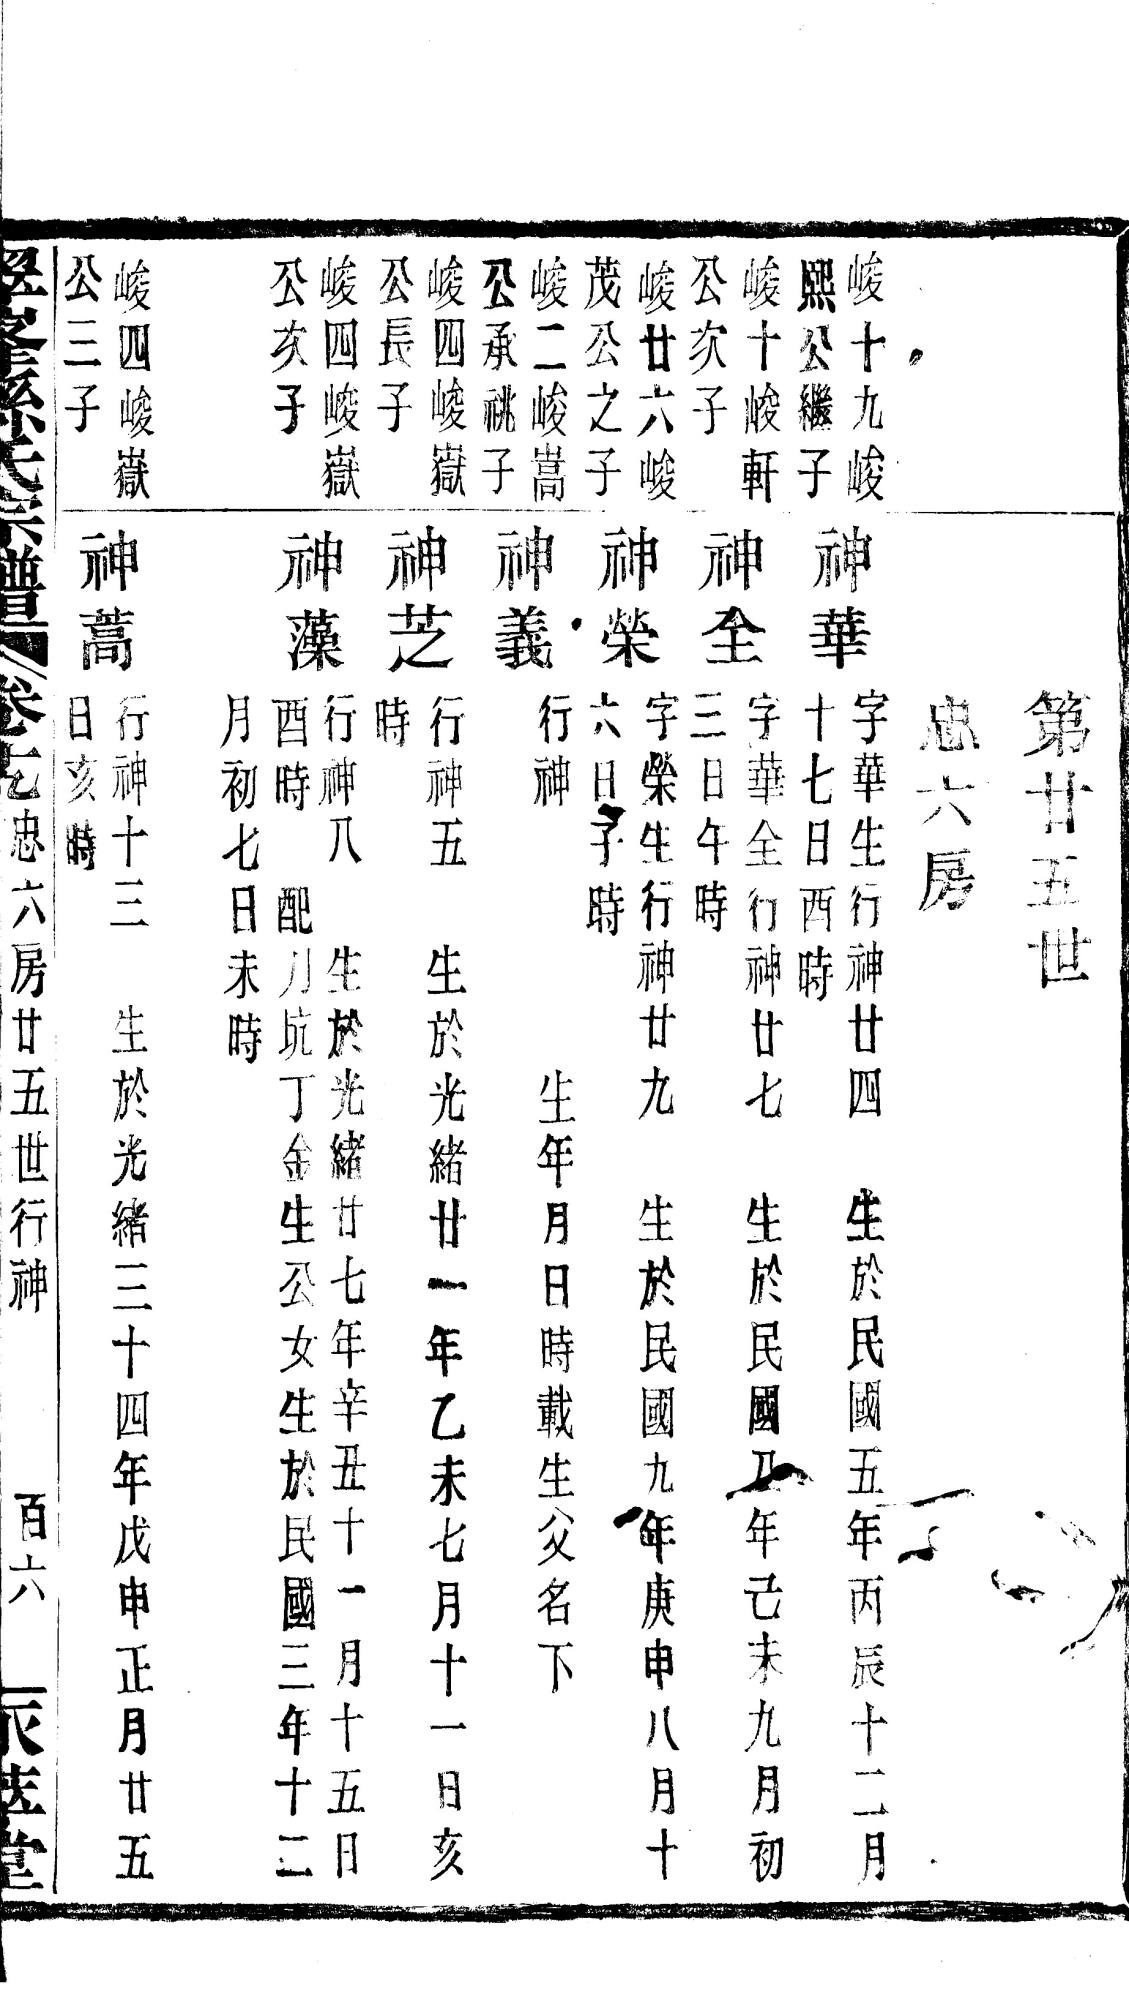 第廿五世
忠六房
峻十九峻
熙公繼子
神華
字華生行神廿四 生於民國五年丙辰十二月
十七日酉時
峻十峻軒
公次子
神全
字華全行神廿七 生於民國年己未九月初
三日午時
峻廿六峻
茂公之子
神榮
字榮生行神廿九 生於民國九年庚申八月十
六日子時
峻二峻嵩
公承祧子
神義
行神 生年月日時載生父名下
峻四峻嶽
公長子
神芝
行神五 生於光緒廿一年乙未七月十一日亥
時
峻四峻嶽
公次子
神藻
行神八 生於光緒廿七年辛丑十一月十五日
酉時 配刀坑丁金生公女生於民國三年十二
月初七日未時
峻四峻嶽
公三子
神蒿
行神十三 生於光緒三十四年戊申正月廿五
日亥時
氏宗譜 卷 忠六房廿五世行神 百六 堂